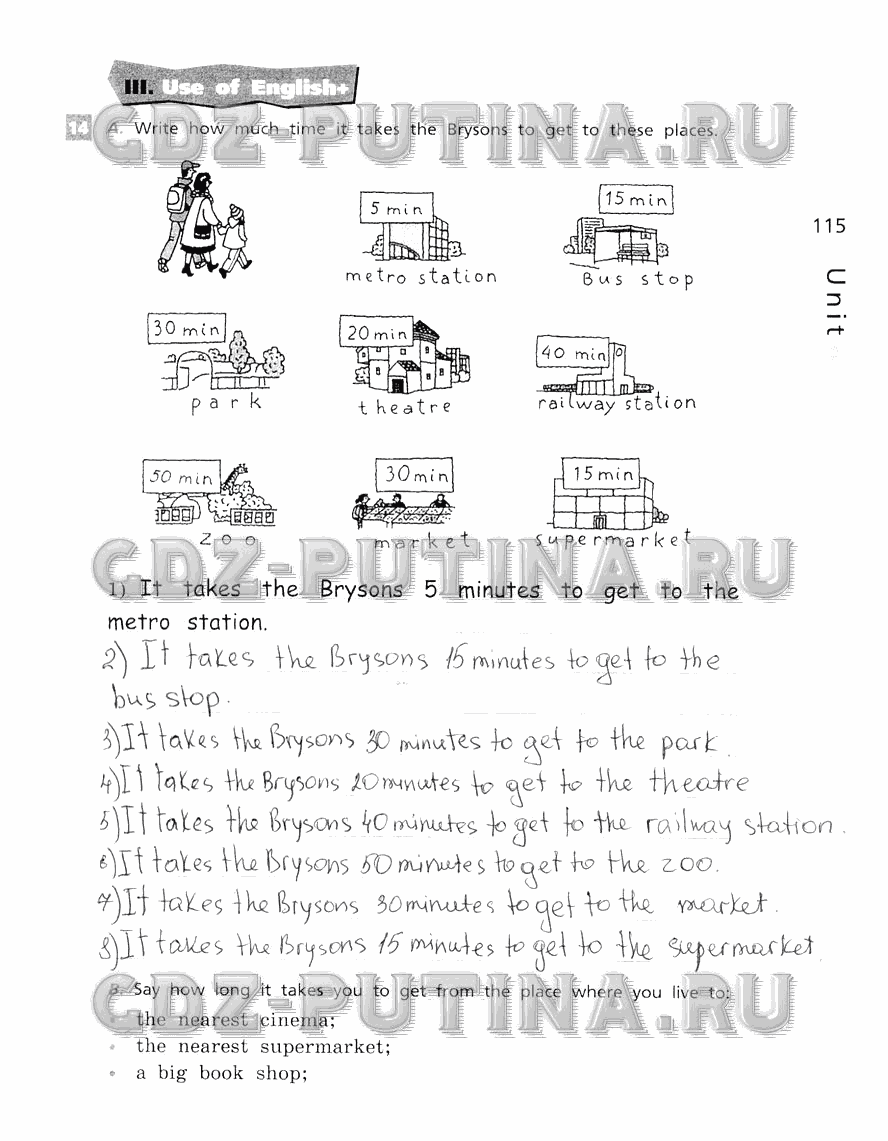 III. Use of English+
GDZ-PUTINA.RU
14 A. Write how much time it takes the Brysons to get to these places.
5 min
15 min
115
metro station
Bus stop
Unit
30 min
20 min
40 min
park
theatre
railway station
50 min
30 min
15 min
zoo
market
supermarket
GDZ-PUTINA.RU
1) It takes the Brysons 5 minutes to get to the
metro station.
2) It takes the Brysons 15 minutes to get to the
bus stop.
3) It takes the Brysons 30 minutes to get to the park.
4) It takes the Brysons 20 minutes to get to the theatre
5) It takes the Brysons 40 minutes to get to the railway station.
6) It takes the Brysons 50 minutes to get to the zoo.
7) It takes the Brysons 30 minutes to get to the market.
8) It takes the Brysons 15 minutes to get to the supermarket
B. Say how long it takes you to get from the place where you live to:
GDZ-PUTINA.RU
• the nearest cinema;
• the nearest supermarket;
• a big book shop;